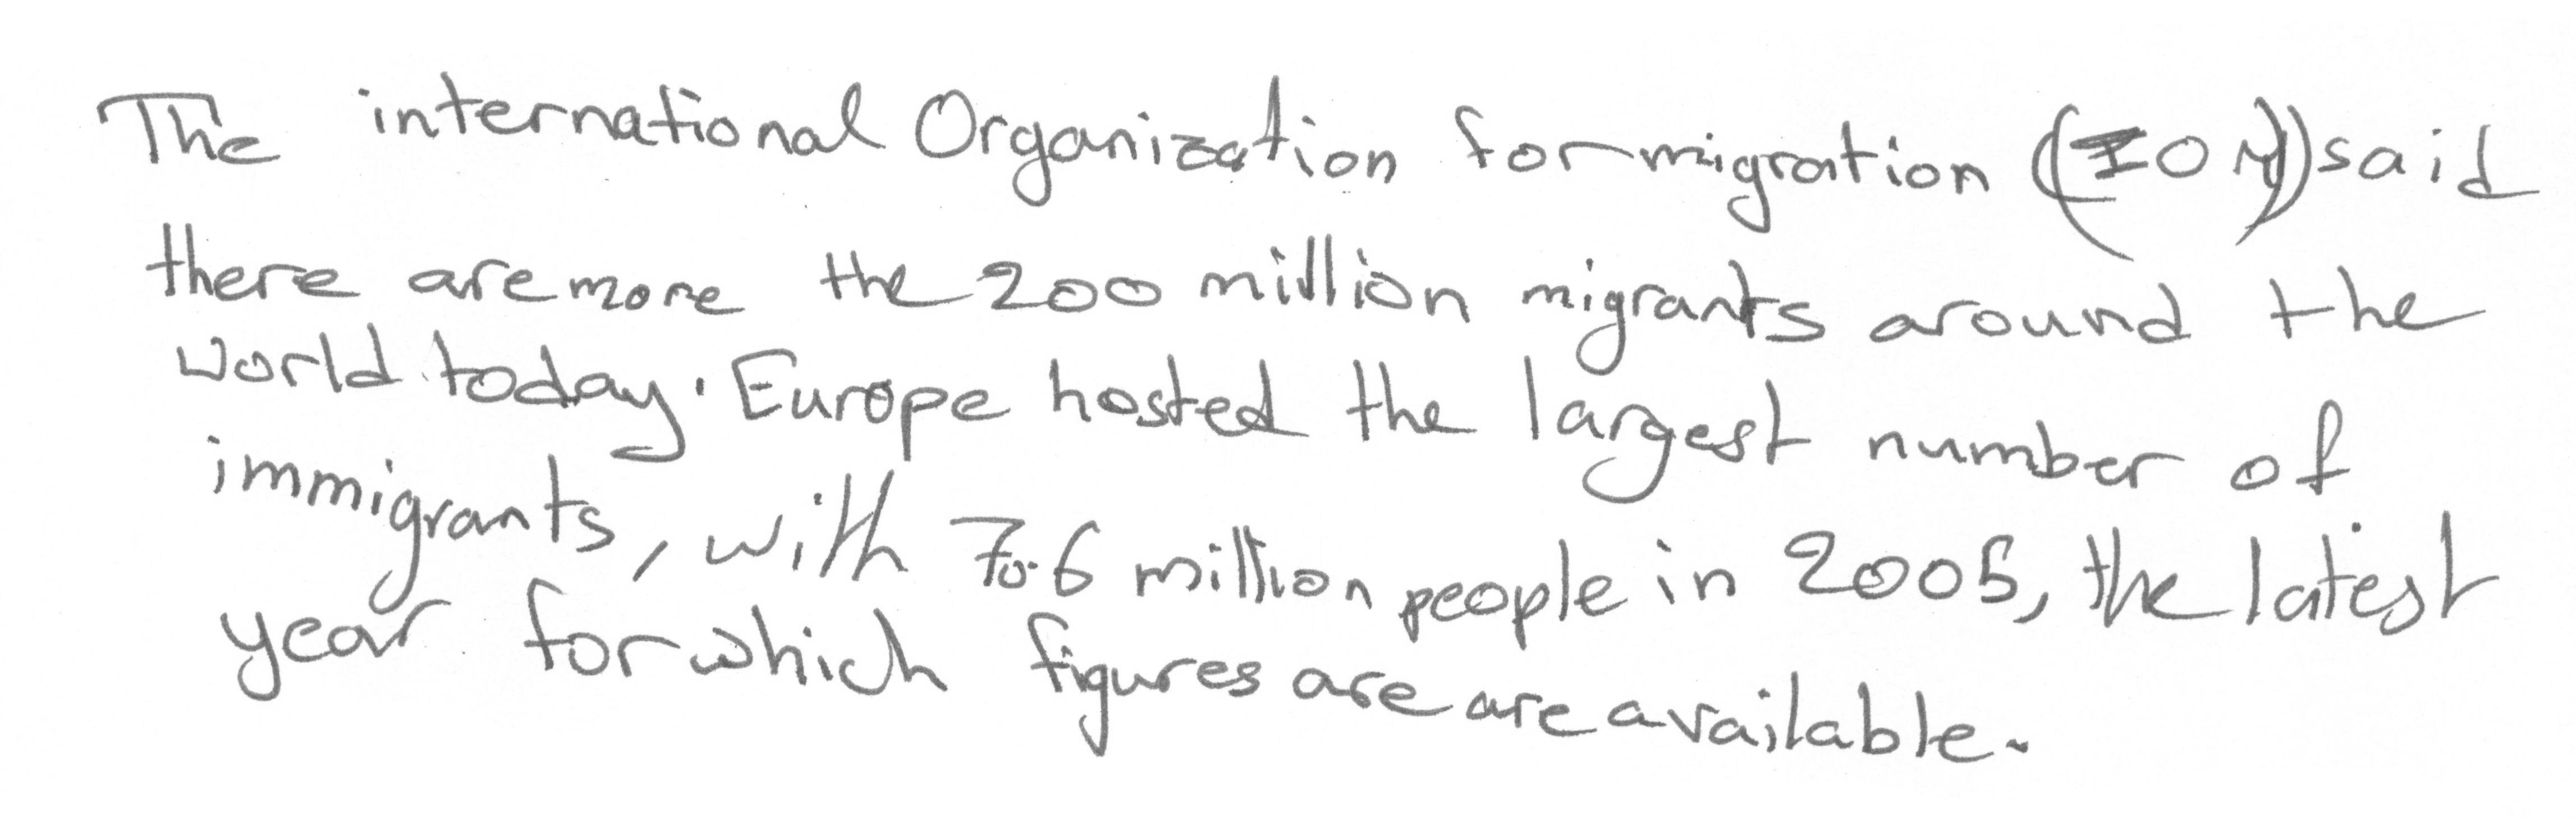 The international Organization for migration (IOM) said
there are more the 200 million migrants around the
world today. Europe hosted the largest number of
immigrants, with 70.6 million people in 2005, the latest
year for which figures are are available.